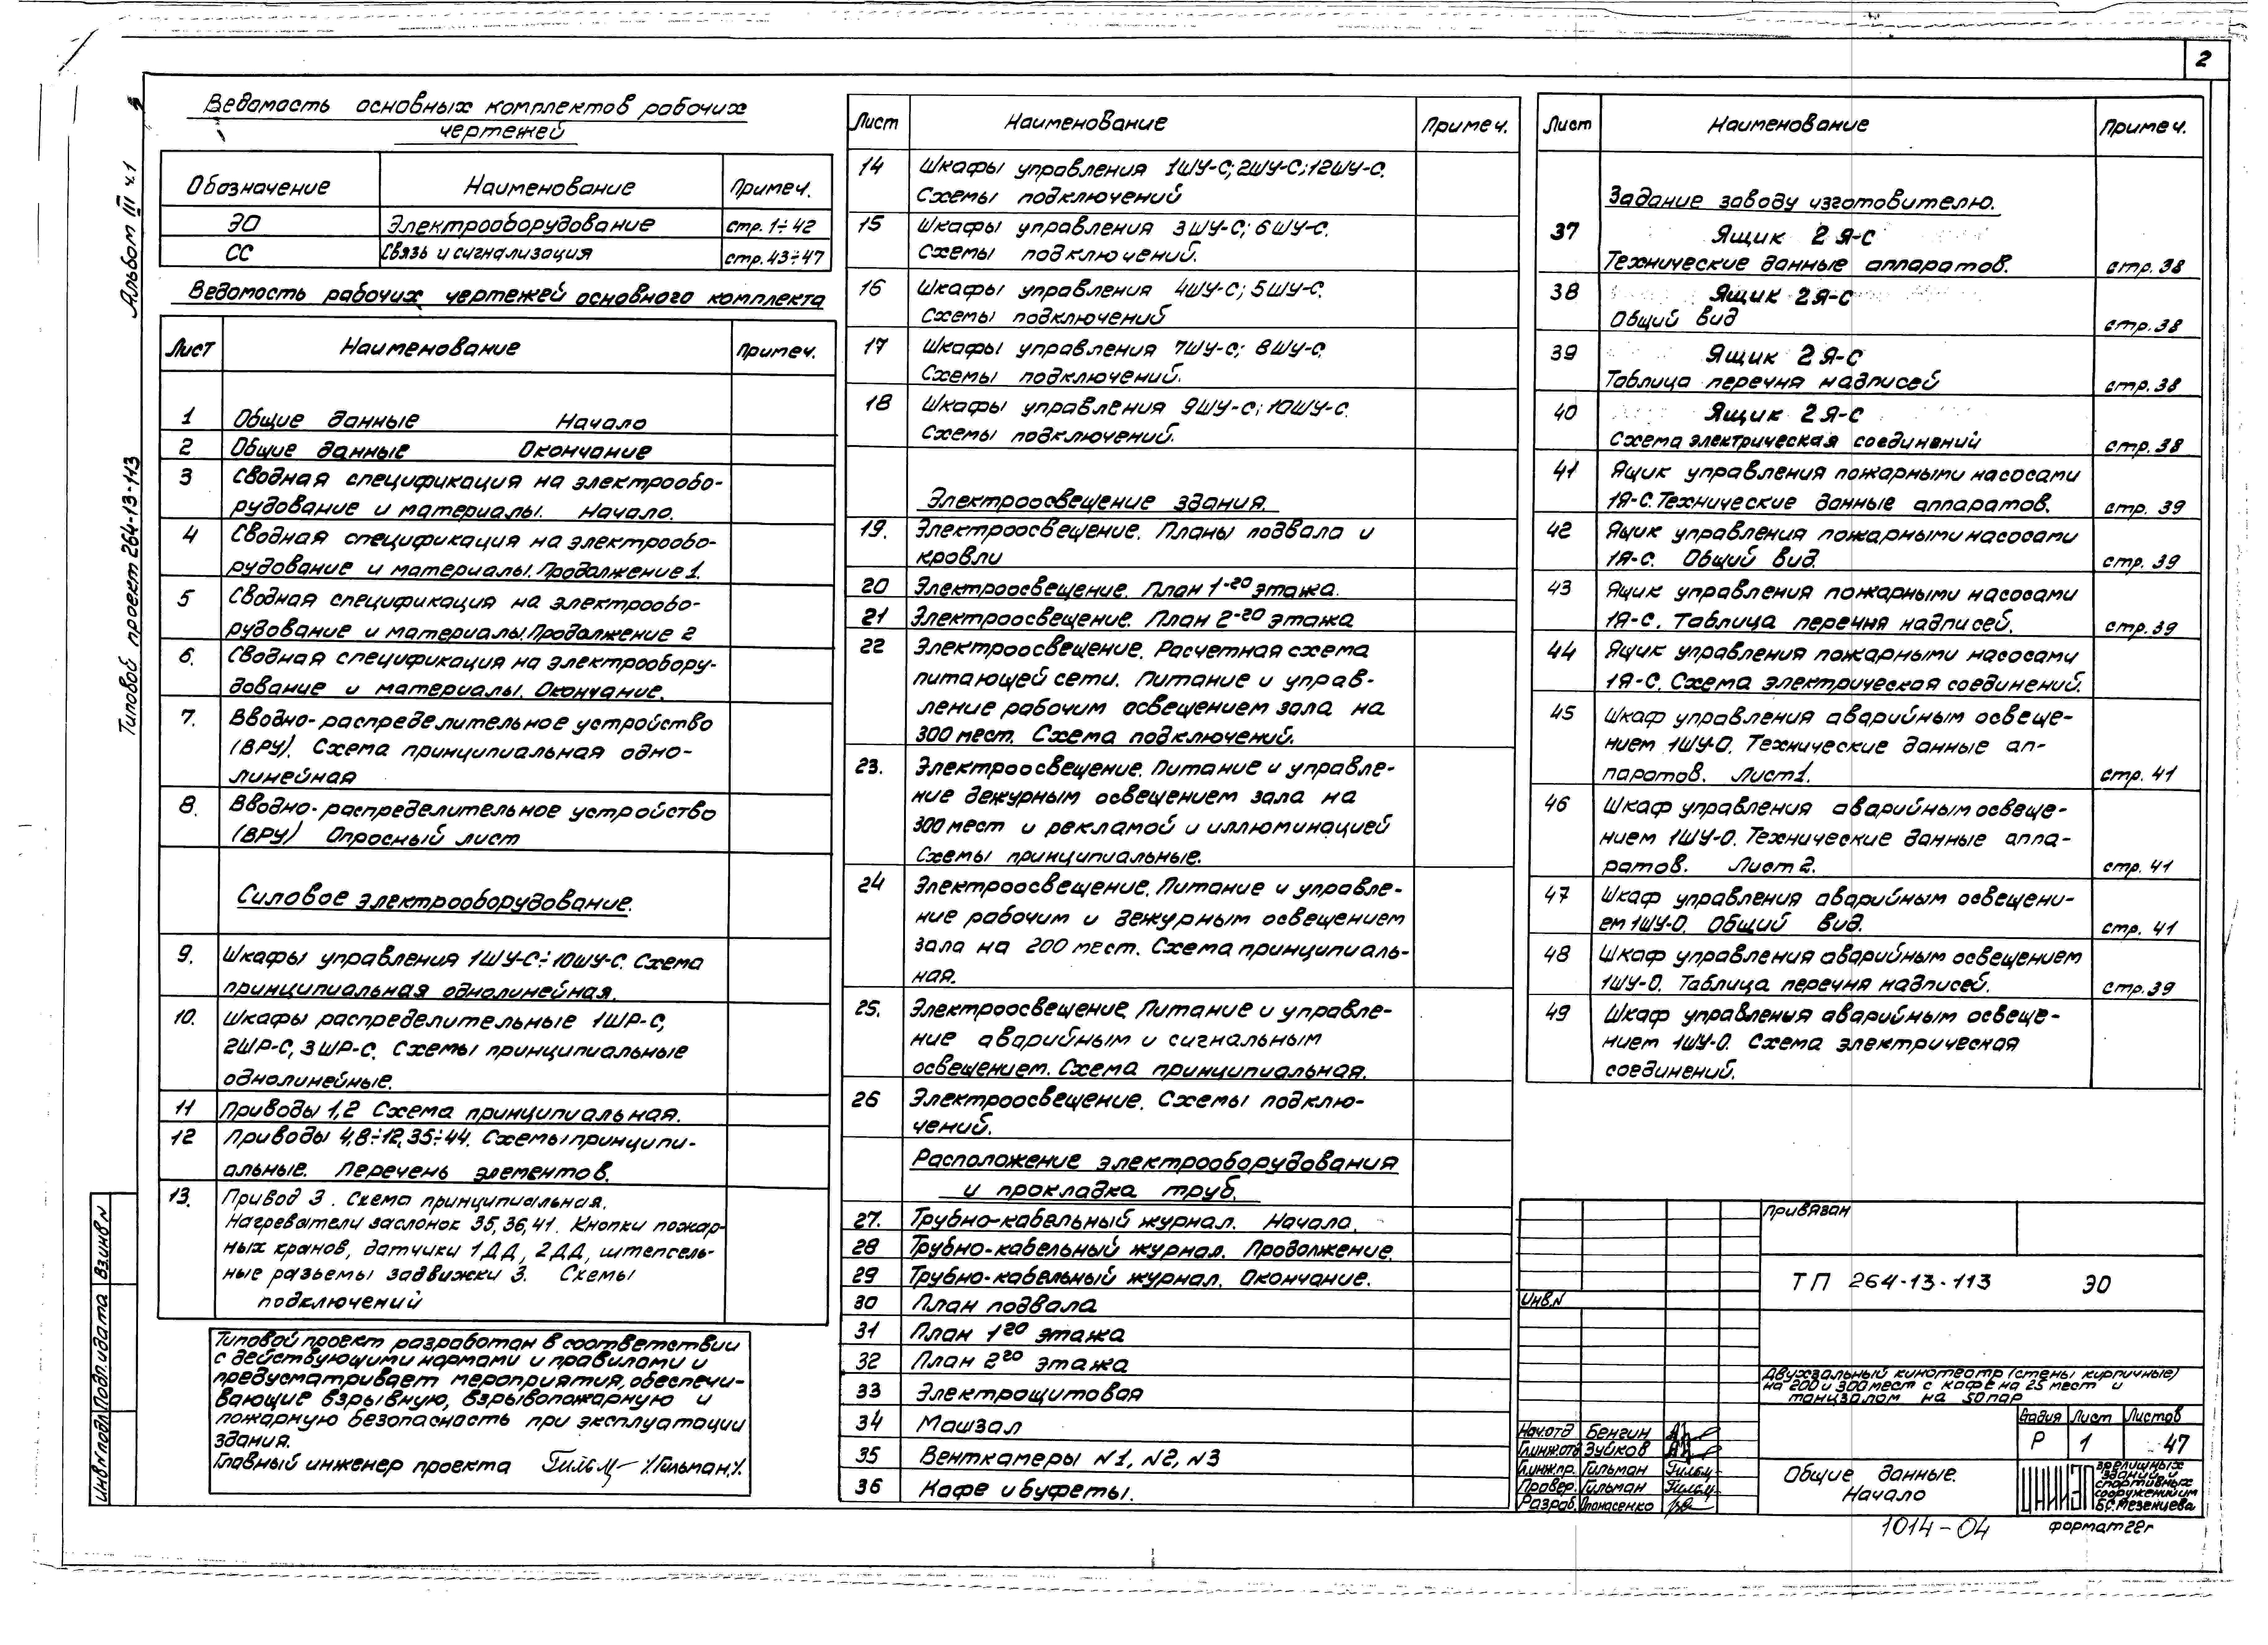 2
Альбом III ч.1
Типовой проект 264-13-113
Ведомость основных комплектов рабочих
чертежей
Обозначение Наименование Примеч.
ЭО Электрооборудование стр. 1÷42
СС Связь и сигнализация стр. 43÷47
Ведомость рабочих чертежей основного комплекта
Лист Наименование Примеч.
1 Общие данные Начало
2 Общие данные Окончание
3 Сводная спецификация на электрообо-
рудование и материалы. Начало.
4 Сводная спецификация на электрообо-
рудование и материалы. Продолжение 1.
5 Сводная спецификация на электрообо-
рудование и материалы. Продолжение 2
6. Сводная спецификация на электрообору-
дование и материалы. Окончание.
7. Вводно-распределительное устройство
(ВРУ). Схема принципиальная одно-
линейная
8. Вводно-распределительное устройство
(ВРУ) Опросный лист
Силовое электрооборудование.
9. Шкафы управления 1ШУ-С÷10ШУ-С. Схема
принципиальная однолинейная.
10. Шкафы распределительные 1ШР-С,
2ШР-С, 3ШР-С. Схемы принципиальные
однолинейные.
11 Приводы 1,2 Схема принципиальная.
12 Приводы 4,8÷12,35÷44. Схемы принципи-
альные. Перечень элементов.
13. Привод 3. Схема принципиальная.
Нагреватели заслонок 35,36,41. Кнопки пожар-
ных кранов, датчики 1ДД, 2ДД, штепсель-
ные разъемы задвижки 3. Схемы
подключений
Типовой проект разработан в соответствии
с действующими нормами и правилами и
предусматривает мероприятия, обеспечи-
вающие взрывную, взрывопожарную и
пожарную безопасность при эксплуатации
здания.
Главный инженер проекта /Гильман./
Инв.N подл. Подп. и дата Вз.инв N
Лист Наименование Примеч.
14 Шкафы управления 1ШУ-С; 2ШУ-С; 12ШУ-С.
Схемы подключений
15 Шкафы управления 3ШУ-С; 6ШУ-С.
Схемы подключений.
16 Шкафы управления 4ШУ-С; 5ШУ-С.
Схемы подключений
17 Шкафы управления 7ШУ-С; 8ШУ-С.
Схемы подключений.
18 Шкафы управления 9ШУ-С; 10ШУ-С.
Схемы подключений.
Электроосвещение здания.
19. Электроосвещение. Планы подвала и
кровли
20 Электроосвещение. План 1-го этажа.
21 Электроосвещение. План 2-го этажа
22 Электроосвещение. Расчетная схема
питающей сети. Питание и управ-
ление рабочим освещением зала на
300 мест. Схема подключений.
23. Электроосвещение. Питание и управле-
ние дежурным освещением зала на
300 мест и рекламой и иллюминацией
Схемы принципиальные.
24 Электроосвещение. Питание и управле-
ние рабочим и дежурным освещением
зала на 200 мест. Схема принципиаль-
ная.
25. Электроосвещение Питание и управле-
ние аварийным и сигнальным
освещением. Схема принципиальная.
26 Электроосвещение. Схемы подклю-
чений.
Расположение электрооборудования
и прокладка труб.
27. Трубно-кабельный журнал. Начало.
28 Трубно-кабельный журнал. Продолжение.
29 Трубно-кабельный журнал. Окончание.
30 План подвала
31 План 1го этажа
32 План 2го этажа
33 Электрощитовая
34 Машзал
35 Венткамеры N1, N2, N3
36 Кафе и буфеты.
Лист Наименование Примеч.
Задание заводу изготовителю.
37 Ящик 2Я-С
Технические данные аппаратов. стр. 38
38 Ящик 2Я-С
Общий вид стр. 38
39 Ящик 2Я-С
Таблица перечня надписей стр. 38
40 Ящик 2Я-С
Схема электрическая соединений стр. 38
41 Ящик управления пожарными насосами
1Я-С. Технические данные аппаратов. стр. 39
42 Ящик управления пожарными насосами
1Я-С. Общий вид. стр. 39
43 Ящик управления пожарными насосами
1Я-С. Таблица перечня надписей. стр. 39
44 Ящик управления пожарными насосами
1Я-С. Схема электрическая соединений.
45 Шкаф управления аварийным освеще-
нием 1ШУ-О. Технические данные ап-
паратов. Лист 1. стр. 41
46 Шкаф управления аварийным освеще-
нием 1ШУ-О. Технические данные аппа-
ратов. Лист 2. стр. 41
47 Шкаф управления аварийным освещени-
ем 1ШУ-О. Общий вид. стр. 41
48 Шкаф управления аварийным освещением
1ШУ-О. Таблица перечня надписей. стр. 39
49 Шкаф управления аварийным освеще-
нием 1ШУ-О. Схема электрическая
соединений.
Привязан
Инв.N
ТП 264-13-113 ЭО
Двухзальный кинотеатр (стены кирпичные)
на 200 и 300 мест с кафе на 25 мест и
танцзалом на 50 пар
Стадия Лист Листов
Р 1 47
Нач.отд Бенгин
Гл.инж.отд Зуйков
Гл.инж.пр. Гильман
Провер. Гильман
Разраб. Опанасенко
Общие данные.
Начало
ЦНИИЭП
зрелищных
зданий и
спортивных
сооружений им
Б.С. Мезенцева
1014-04
формат 22г